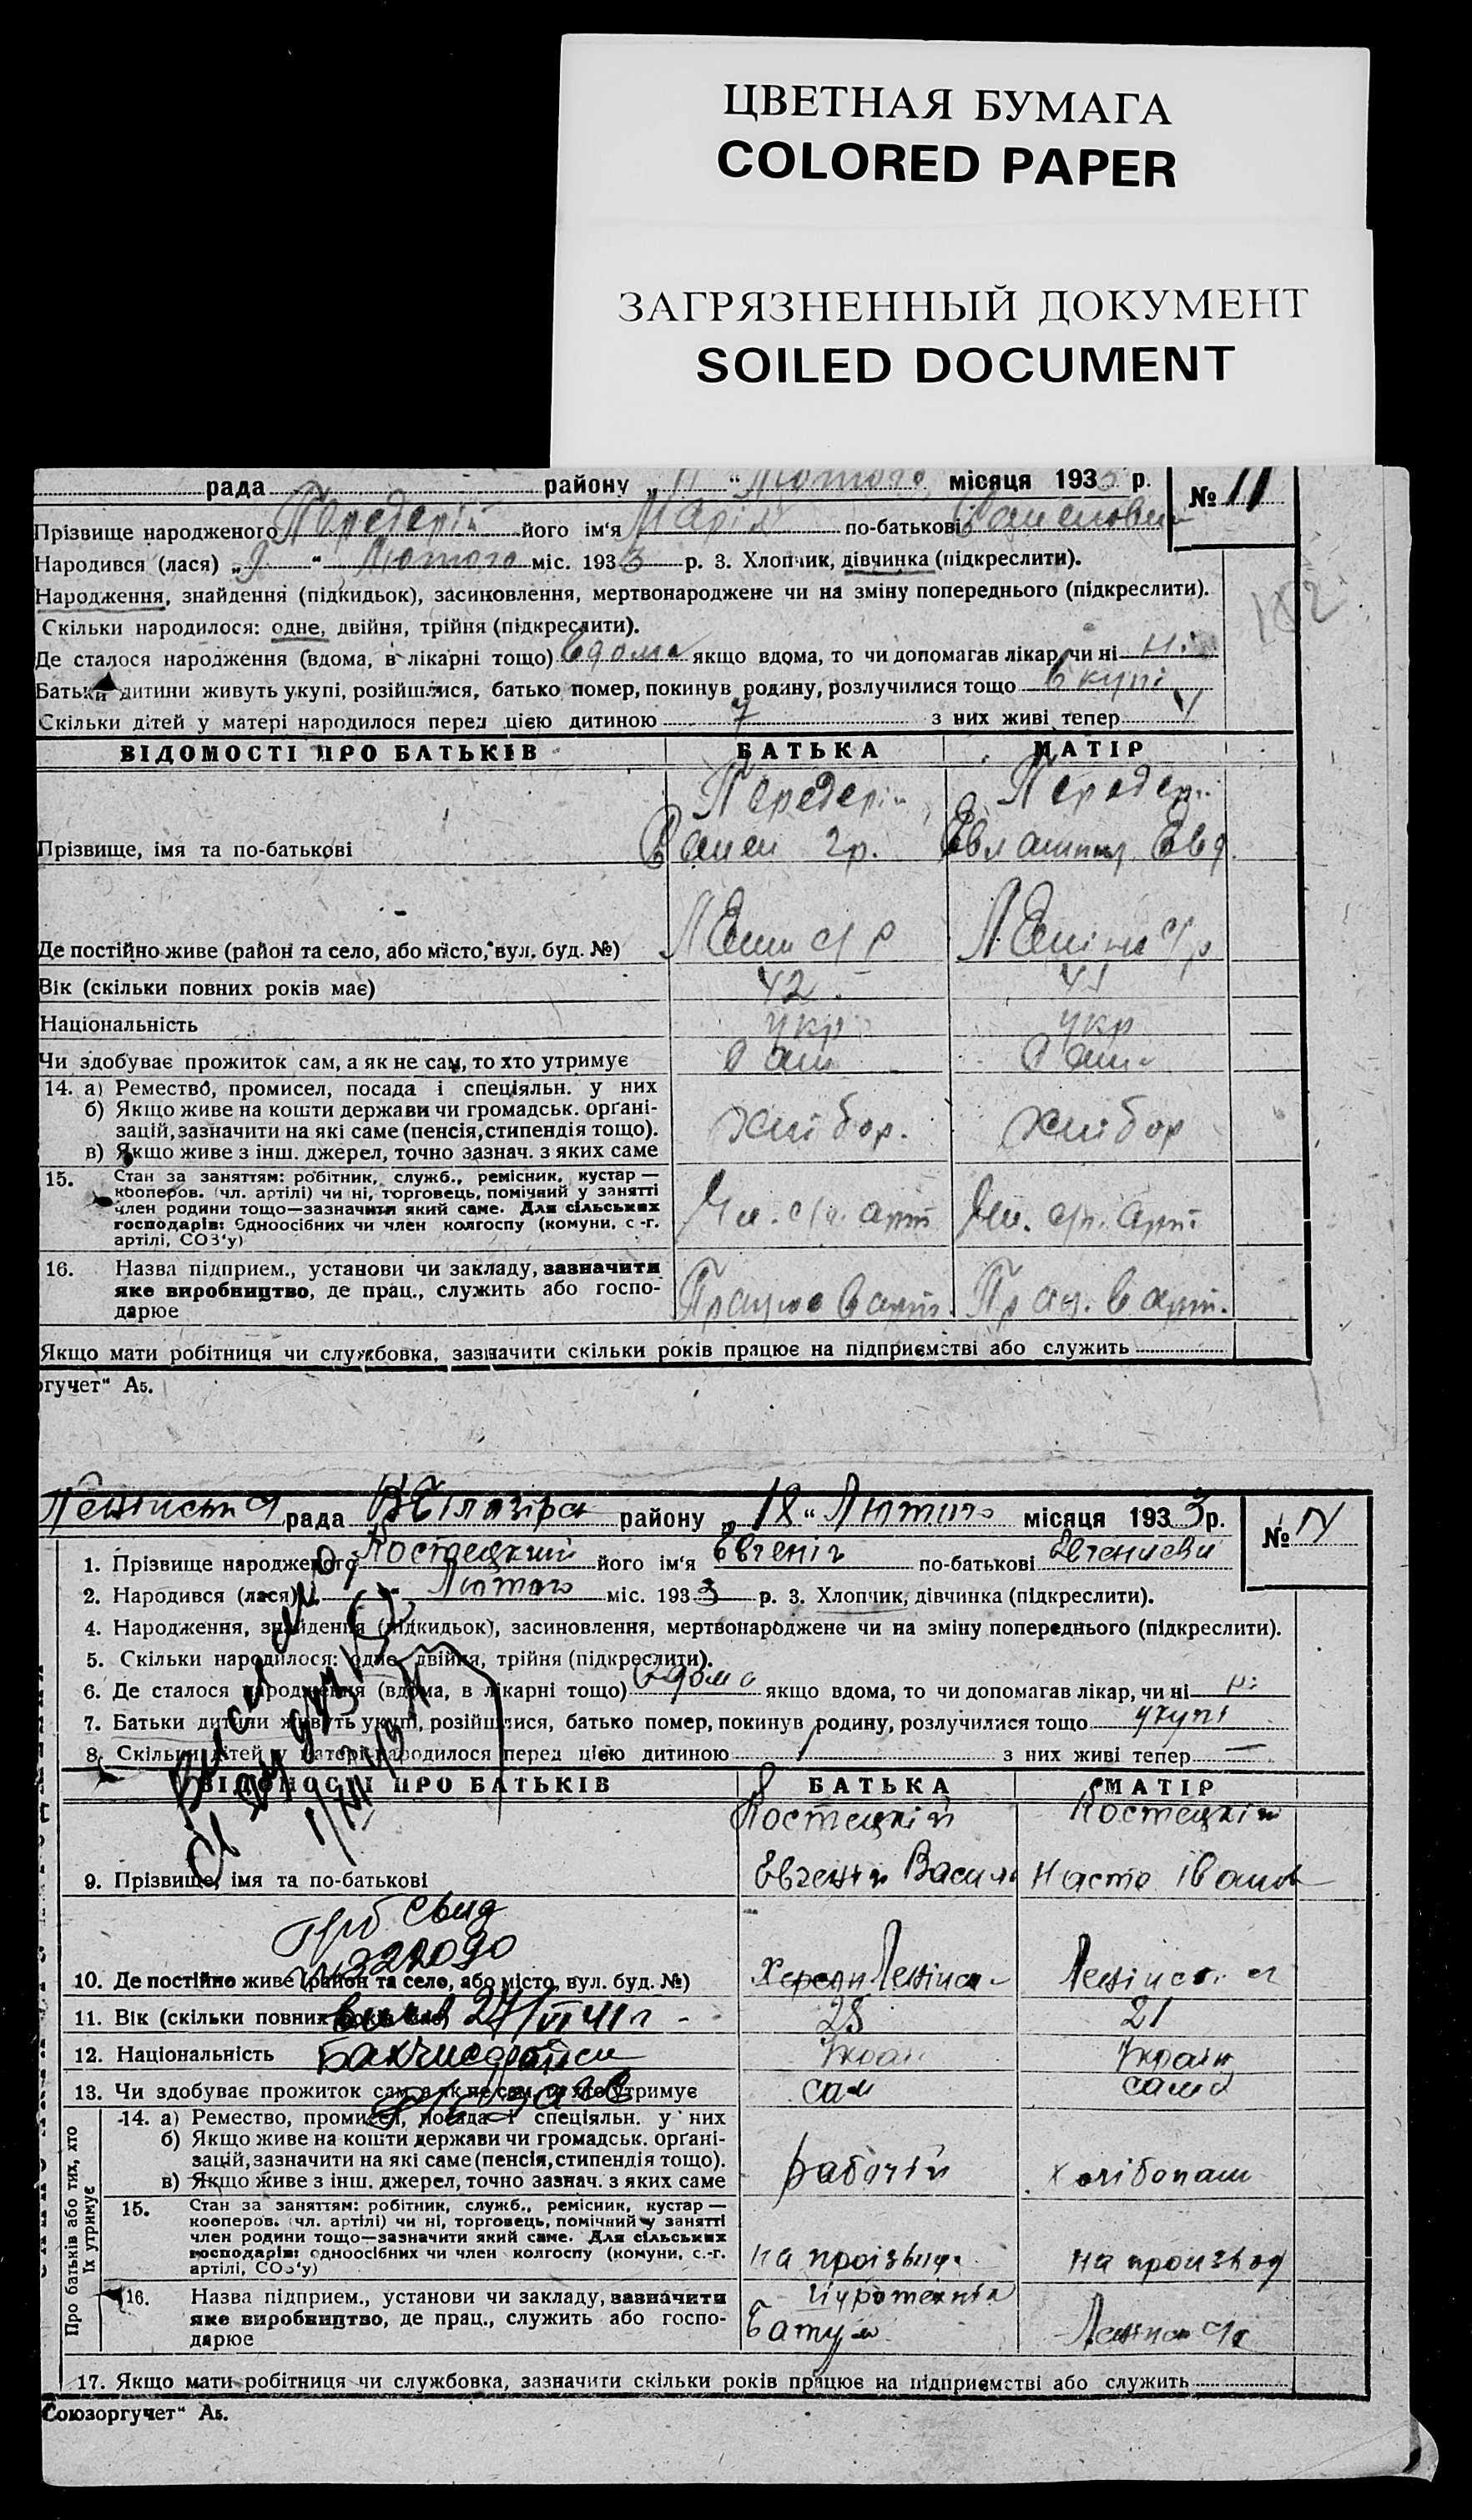 ЦВЕТНАЯ БУМАГА
COLORED PAPER
ЗАГРЯЗНЕННЫЙ ДОКУМЕНТ
SOILED DOCUMENT
рада району „ 11 “ Лютого місяця 1933 р. № 11
Прізвище народженого Передерій його ім‘я Марія по-батькові
Народився (лася) „ “ Лютого міс. 1933 р. 3. Хлопчик, дівчинка (підкреслити).
Народження, знайдення (підкидьок), засиновлення, мертвонароджене чи на зміну попереднього (підкреслити).
182
Скільки народилося: одне, двійня, трійня (підкреслити).
Де сталося народження (вдома, в лікарні тощо) вдома якщо вдома, то чи допомагав лікар, чи ні ні
Батьки дитини живуть укупі, розійшлися, батько помер, покинув родину, розлучилися тощо вкупі
Скільки дітей у матері народилося перед цією дитиною 7 з них живі тепер 4
ВІДОМОСТІ ПРО БАТЬКІВ БАТЬКА МАТІР
Передерій Передер.
Прізвище, імя та по-батькові гр. Евд.
Де постійно живе (район та село, або місто, вул. буд. №) с/р с/р
Вік (скільки повних років має) 42 41
Національність укр укр
Чи здобуває прожиток сам, а як не сам, то хто утримує сам сама
14. а) Ремество, промисел, посада і спеціяльн. у них
б) Якщо живе на кошти держави чи громадськ. орґані-
зацій, зазначити на які саме (пенсія, стипендія тощо). хлібор. хлібор
в) Якщо живе з інш. джерел, точно зазнач. з яких саме
15. Стан за заняттям: робітник, служб., ремісник, кустар —
кооперов. (чл. артілі) чи ні, торговець, помічний у занятті
член родини тощо—зазначити який саме. Для сільських
господарів: одноосібних чи член колгоспу (комуни, с.-г. Чл. с/г. арт Чл. с/г. арт.
артілі, СОЗ‘у)
16. Назва підприєм., установи чи закладу, зазначити
яке виробництво, де прац., служить або госпо- Працює в арт. Прац. в арт.
дарює
Якщо мати робітниця чи службовка, зазначити скільки років працює на підприємстві або служить
ргучет“ А5.
Ленінська рада району „ 18 “ Лютого місяця 1933 р. №
1. Прізвище народженого Костецкий його ім‘я Евгеній по-батькові Евгениеви
2. Народився (лася) Лютого міс. 1933 р. 3. Хлопчик, дівчинка (підкреслити).
4. Народження, знайдення (підкидьок), засиновлення, мертвонароджене чи на зміну попереднього (підкреслити).
5. Скільки народилося: одне, двійня, трійня (підкреслити).
6. Де сталося народження (вдома, в лікарні тощо) вдома якщо вдома, то чи допомагав лікар, чи ні ні
7. Батьки дитини живуть укупі, розійшлися, батько помер, покинув родину, розлучилися тощо укупі
8. Скільки дітей у матері народилося перед цією дитиною з них живі тепер —
ВІДОМОСТІ ПРО БАТЬКІВ БАТЬКА МАТІР
Костецкій Костецкій
9. Прізвище, імя та по-батькові Евгеній Василь Настя Іванов
свид
322090
10. Де постійно живе (район та село, або місто, вул. буд. №) Херсон Ленінськ Ленінськ
11. Вік (скільки повних років має) 28 21
27/VI 41 г
12. Національність Украін Украін
13. Чи здобуває прожиток сам, а як не сам, то хто утримує сам сама
Про батьків або тих, хто їх утримує
14. а) Ремество, промисел, посада і спеціяльн. у них
б) Якщо живе на кошти держави чи громадськ. орґані-
зацій, зазначити на які саме (пенсія, стипендія тощо). рабочій хлібопаш
в) Якщо живе з інш. джерел, точно зазнач. з яких саме
15. Стан за заняттям: робітник, служб., ремісник, кустар —
кооперов. (чл. артілі) чи ні, торговець, помічний у занятті
член родини тощо—зазначити який саме. Для сільських
господарів: одноосібних чи член колгоспу (комуни, с.-г. на на производ
артілі, СОЗ‘у)
16. Назва підприєм., установи чи закладу, зазначити
яке виробництво, де прац., служить або госпо- Батум
дарює
17. Якщо мати робітниця чи службовка, зазначити скільки років працює на підприємстві або служить
Союзоргучет“ А5.